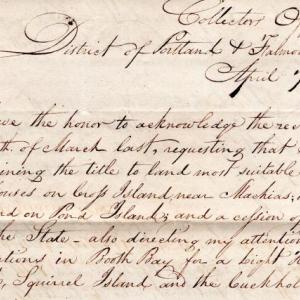 Collectors
District of Portland & Falmo
April
ve the honor to acknowledge the re
th. of March last, requesting that
ining the title to land most suitable
houses on Cross Island, near Machias,
rd on Pond Island; and a cession of
the State - also directing my attention
tions in Booth Bay for a Light
Squirrel Island and the Cuckho